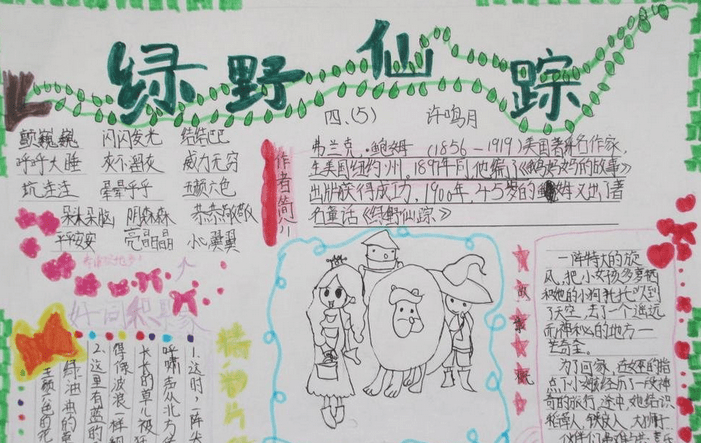 绿野仙踪
四、(5) 许鸣月
颤巍巍 闪闪发光 结结巴巴
呼呼大睡 夜不闭夜 威力无穷
坑洼洼 晕晕乎乎 五颜六色
呆头呆脑 阴森森 恭恭敬敬
平安安 亮晶晶 小心翼翼
好词积累家
作者简介
弗兰克·鲍姆 (1856-1919)美国著名作家,
生美国纽约州。1897年同他编了《鹅妈妈的故事》
出版获得成功,1900年,45岁的鲍姆又出了著
名童话《绿野仙踪》
精彩片
1.这时,一阵
呼啸声从北方
长长的草儿被
得像波浪一样
2.这里有蓝的
绿油油的草
五颜六色的花
故事概
一阵特大的旋
风,把小女孩多萝茜
和她的小狗托托吹到
了天空,去了一个遥远
而神秘的地方一
芒奇金。
为了回家,在女巫的指
点下小姑娘经历了一段神
奇的旅行,途中,她结识
稻草人、铁皮人、大狮子